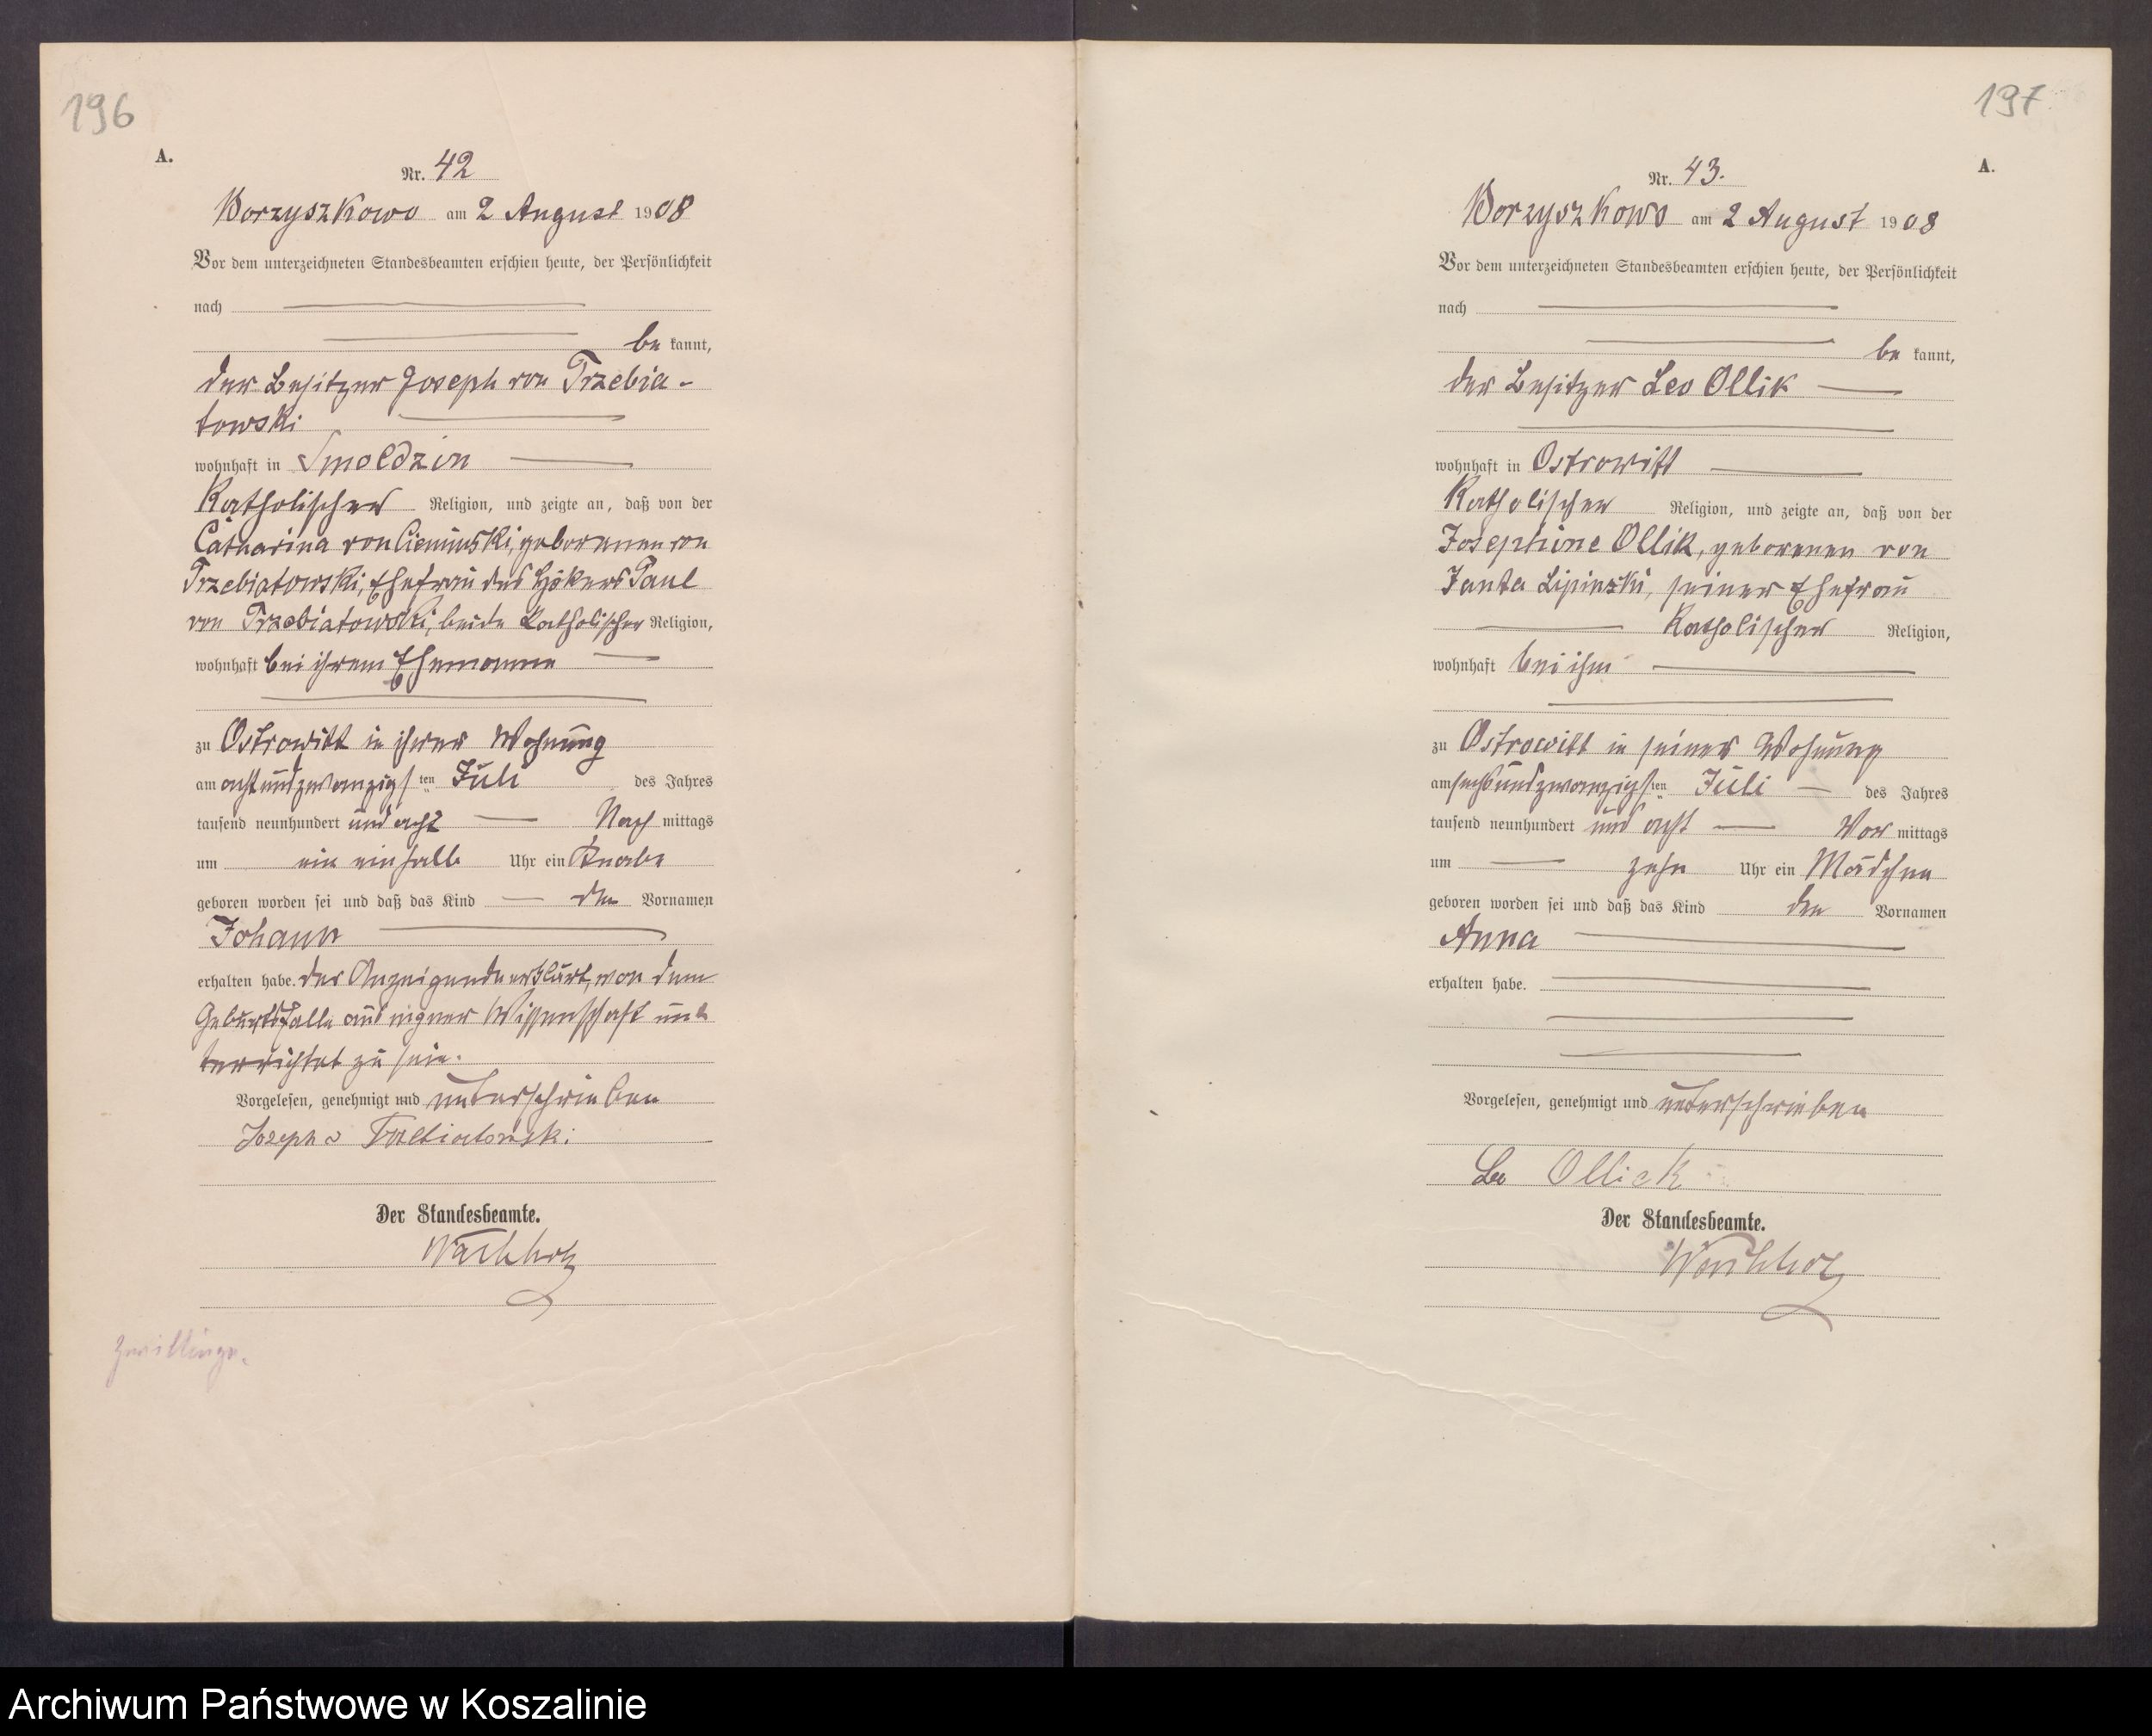 196
A.
Nr. 42
Borzyszkowo am 2 August 1908
Vor dem unterzeichneten Standesbeamten erschien heute, der Persönlichkeit
nach
be kannt,
der Besitzer Joseph von Trzebia-
towski
wohnhaft in Smoldzin
Katholischer Religion, und zeigte an, daß von der
Catharina von Cieminski, geborenen von
Trzebiatowski, Ehefrau des Hökers Paul
von Trzebiatowski, beide Katholischer Religion,
wohnhaft bei ihrem Ehemanne
zu Ostrowitt in ihrer Wohnung
am achtundzwanzigsten Juli des Jahres
tausend neunhundert und acht Nach mittags
um ein einhalb Uhr ein Knabe
geboren worden sei und daß das Kind den Vornamen
Johann
erhalten habe. Der Anzeigende erklärt, von dem
Geburtsfalle aus eigner Wissenschaft un
terrichtet zu sein.
Vorgelesen, genehmigt und unterschrieben
Joseph v Trzebiatowski
Der Standesbeamte.
Wachholz
Zwillinge.
197
A.
Nr. 43.
Borzyszkowo am 2 August 1908
Vor dem unterzeichneten Standesbeamten erschien heute, der Persönlichkeit
nach
be kannt,
der Besitzer Leo Ollik
wohnhaft in Ostrowitt
Katholischer Religion, und zeigte an, daß von der
Josephine Ollik, geborenen von
Janta Lipinski, seiner Ehefrau
Katholischer Religion,
wohnhaft bei ihm
zu Ostrowitt in seiner Wohnung
am sechsundzwanzigsten Juli des Jahres
tausend neunhundert und acht Vor mittags
um zehn Uhr ein Mädchen
geboren worden sei und daß das Kind den Vornamen
Anna
erhalten habe.
Vorgelesen, genehmigt und unterschrieben
Leo Ollick
Der Standesbeamte.
Wachholz
Archiwum Państwowe w Koszalinie